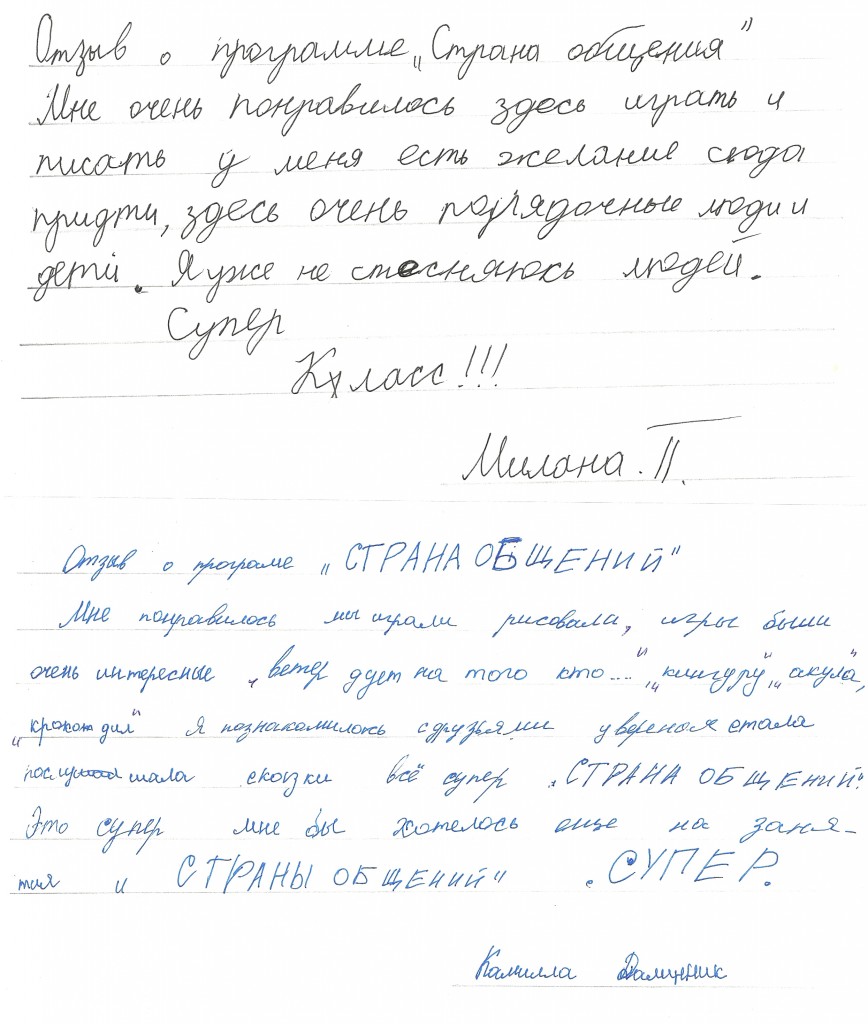 Отзыв о программе „Страна общения"
Мне очень понравилось здесь играть и
писать у меня есть желание сюда
придти, здесь очень порядочные люди и
дети. Я уже не стесняюсь людей.
Супер
Класс!!!
Милана. П.
Отзыв о програме „СТРАНА ОБЩЕНИЙ"
Мне понравилось мы играли рисовала, игры были
очень интересные „ветер дует на того кто...." „кингуру" „акула",
„крокодил" Я познакомилась с друзьями увереной стала
послушала сказки всё супер „СТРАНА ОБЩЕНИЙ".
Это супер мне бы хотелось еще на заня-
тия и СТРАНЫ ОБЩЕНИЙ" . СУПЕР.
Камилла